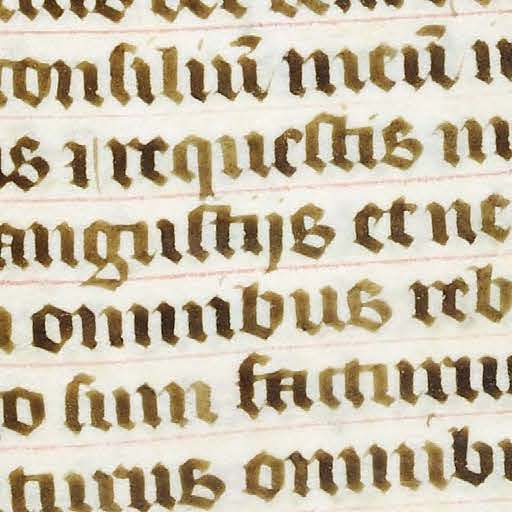 consiliū meū
⁊ requestis
angustijs et ne
omnibus reb
o sum facturu
turus omnibu